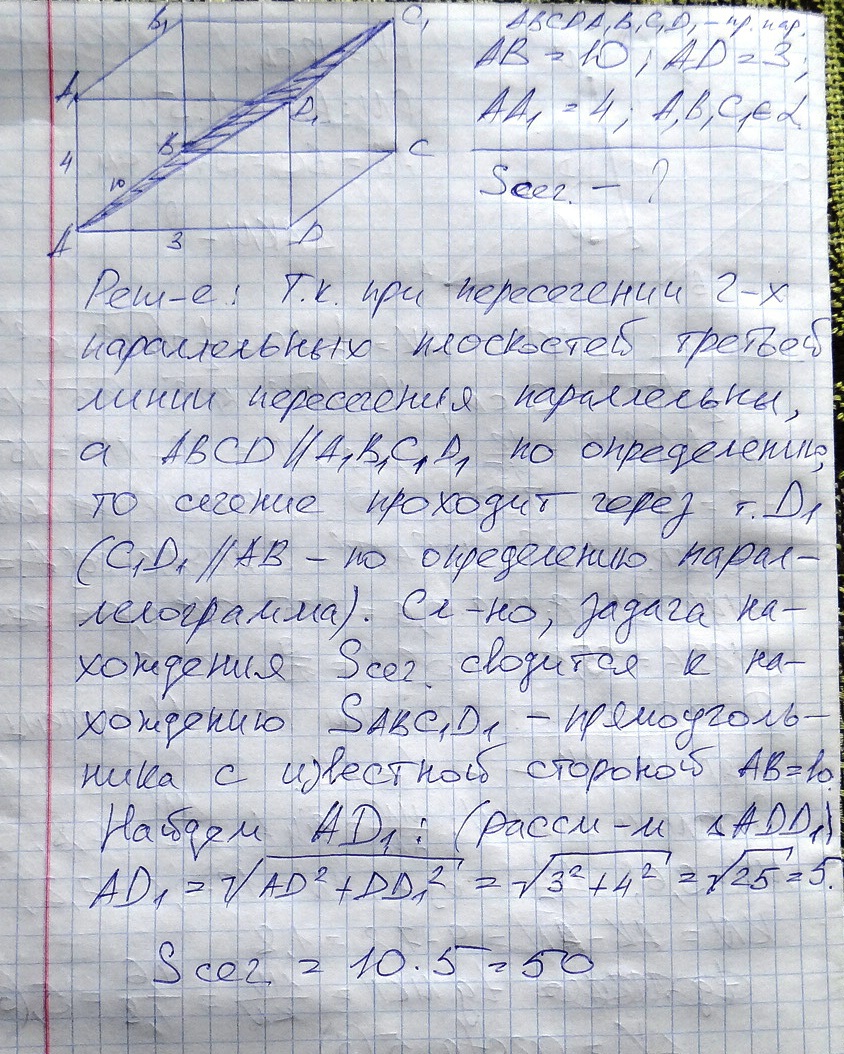 B₁
C₁
A₁
D₁
B
C
4
10
A
3
D
ABCDA₁B₁C₁D₁ – пр. пар.
AB = 10; AD = 3;
AA₁ = 4; A,B,C₁ ∈ α
Sсег. – ?
Реш-е: Т.к. при пересечении 2-х
параллельных плоскостей третьей
линии пересечения параллельны,
а ABCD // A₁B₁C₁D₁ по определению,
то сечение проходит через т. D₁
(C₁D₁ // AB – по определению парал-
лелограмма). Сл-но, задача на-
хождения Sсег. сводится к на-
хождению SABC₁D₁ – прямоуголь-
ника с известной стороной AB=10.
Найдем AD₁: (рассм-м △ADD₁)
AD₁ = √AD² + DD₁² = √3²+4² = √25 = 5.
Sсег. = 10·5 = 50